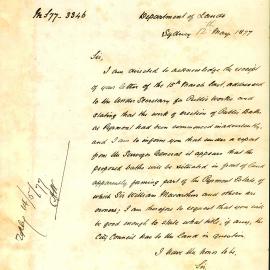 Ms 77-3346
Department of Lands
Sydney 12th May 1877
Sir,
I am directed to acknowledge the receipt
of your letter of the 15th March last, addressed
to the Under Secretary for Public Works and
stating that the work of erection of Public Baths
at Pyrmont had been commenced inadvertently,
and I am to inform you that under a report
from the Surveyor General it appears that the
proposed baths will be situated in part of land
apparently forming part of the Pyrmont Estate, of
which Sir William Macarthur and others are
owners; I am therefore to request that you will
be good enough to state what title, if any, the
City Council has to the land in question.
I have the honor to be,
Sir